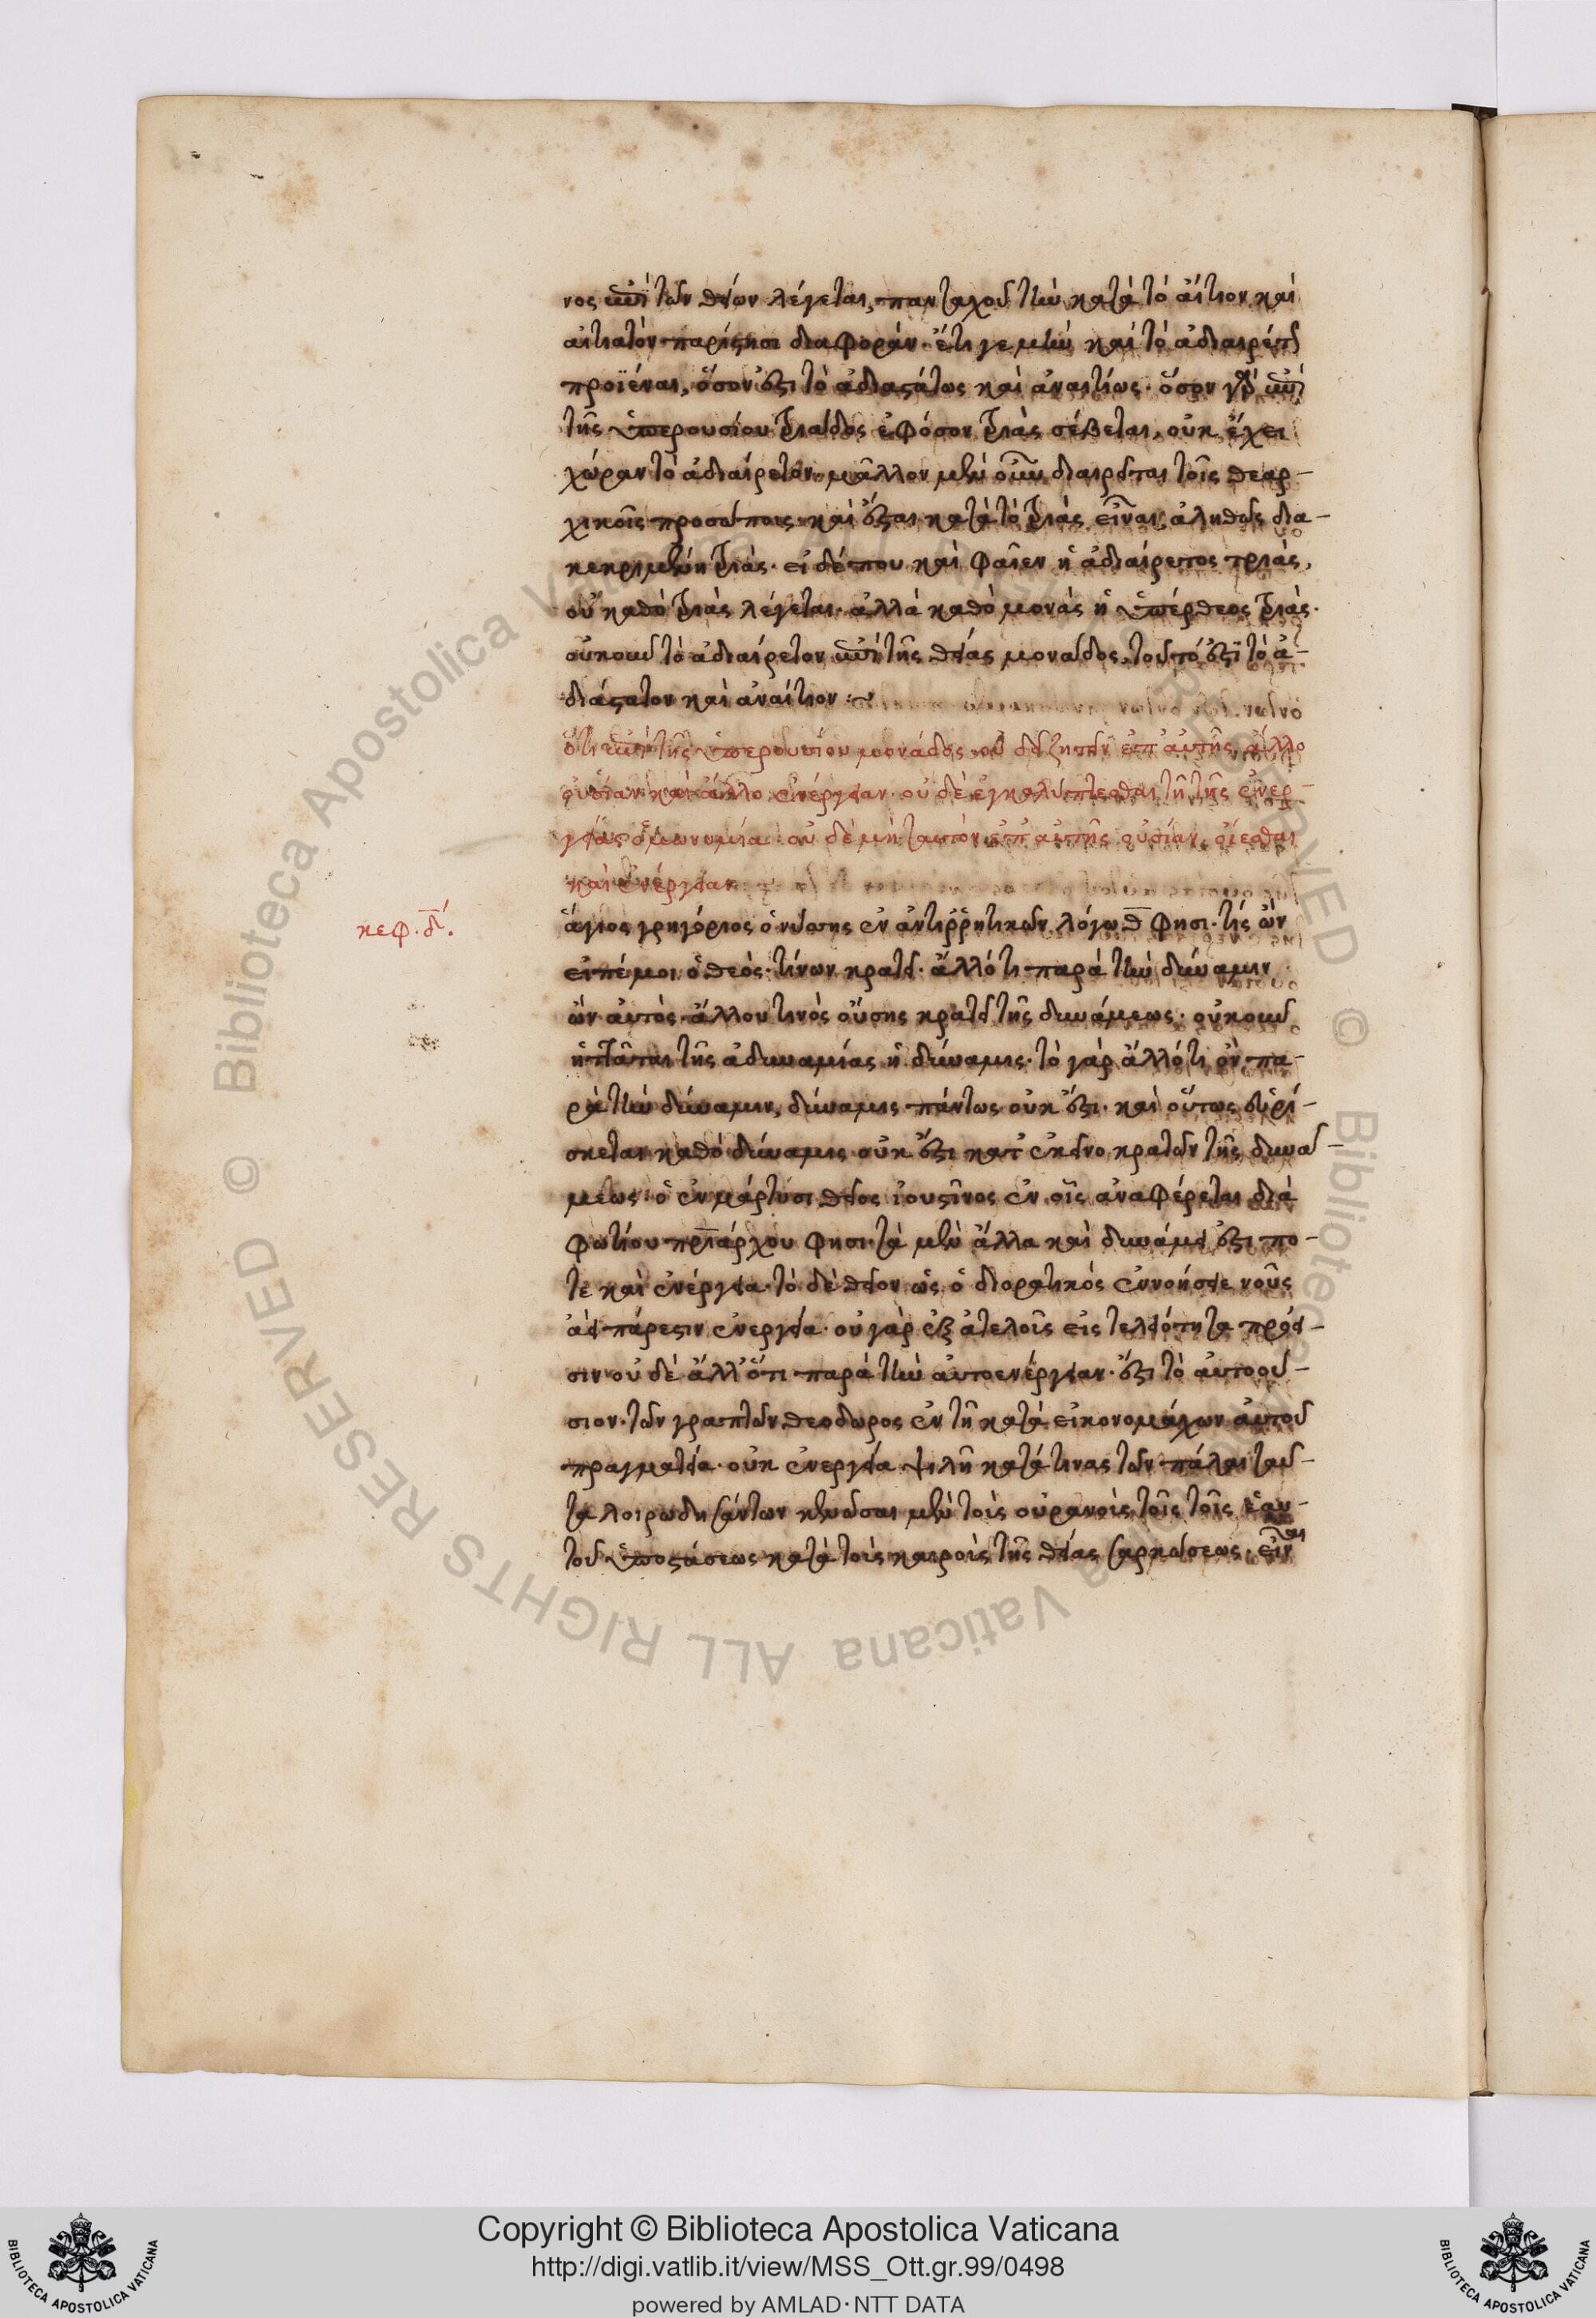 νος ἐπὶ τῶν θείων λέγεται, πανταχοῦ τὴν κατὰ τὸ αἴτιον καὶ
αἰτιατὸν παρίστησι διαφοράν. ἔτι γε μὴν καὶ τὸ ἀδιαιρέτως
προϊέναι, ὅσον ἐστὶ τὸ ἀδιαστάτως καὶ ἀναιτίως. ὅσον γὰρ ἐπὶ
τῆς ὑπερουσίου τριάδος ἐφόσον τριὰς σέβεται, οὐκ ἔχει
χώραν τὸ ἀδιαίρετον. μᾶλλον μὲν οὖν διαιρεῖται τοῖς θεαρ-
χικοῖς προσώποις. καὶ ἔσται κατὰ τὸ τριὰς εἶναι, ἀληθῶς δια-
κεκριμένη τριάς. εἰ δέ που καὶ φαῖεν ἡ ἀδιαίρετος τριάς,
οὐ καθὸ τριὰς λέγεται. ἀλλὰ καθὸ μονὰς ἡ ὑπέρθεος τριάς.
οὐκοῦν τὸ ἀδιαίρετον ἐπὶ τῆς θείας μονάδος, τοῦτό ἐστι τὸ ἀ-
διάστατον καὶ ἀναίτιον :~
ὅτι ἐπὶ τῆς ὑπερουσίου μονάδος οὐ δεῖ ζητεῖν ἐπ' αὐτῆς ἄλλο
οὐσίαν καὶ ἄλλο ἐνέργειαν. οὐδὲ ἐγκαλύπτεσθαι τῇ τῆς ἐνερ-
γείας ὁμωνυμίᾳ. οὐδὲ μὴ ταυτὸν ἐπ' αὐτῆς οὐσίαν οἴεσθαι
καὶ ἐνέργειαν :~
κεφ. δ'.
ἅγιος γρηγόριος ὁ νύσσης ἐν ἀντιρρητικῶν λόγω θ φησι. τίς ὢν
εἰπέ μοι ὁ θεὸς τίνων κρατεῖ. ἄλλό τι παρὰ τὴν δύναμιν
ὢν αὐτὸς ἄλλου τινὸς οὔσης κρατεῖ τῆς δυνάμεως. οὐκοῦν
ἡττᾶται τῆς ἀδυναμίας ἡ δύναμις. τὸ γὰρ ἄλλό τι ὂν πα-
ρὰ τὴν δύναμιν, δύναμις πάντως οὐκ ἔστι. καὶ οὕτως εὑρί-
σκεται καθὸ δύναμις οὐκ ἔστι κατ' ἐκεῖνο κρατῶν τῆς δυνά-
μεως. ὁ ἐν μάρτυσι θεῖος ἰουστῖνος ἐν οἷς ἀναφέρεται διὰ
φωτίου πριάρχου φησι. τὰ μὲν ἄλλα καὶ δυνάμει ἐστι πο-
τὲ καὶ ἐνέργεια. τὸ δὲ θεῖον ὡς ὁ διορατικὸς ἐννοήσειε νοῦς
ἀεὶ πάρεστιν ἐνεργεία. οὐ γὰρ ἐξ ἀτελοῖς εἰς τελειότητα πρόει-
σιν οὐδὲ ἄλλ' ὅτι παρὰ τὴν αὐτοενέργειαν. ἔστι τὸ αὐτοού-
σιον. τῶν γραπτῶν θεοδωρος ἐν τῇ κατὰ εἰκονομάχων αὐτοῦ
πραγματεία. οὐκ ἐνεργεία ψιλῇ κατά τινας τῶν πάλαι ταῦ-
τα ληρωδησάντων κενῶσαι μὲν τοὶς οὐρανοὶς τοῖς τοῖς ἑαυ-
τοῦ ὑποστάσεως κατὰ τοὶς καιροὶς τῆς θείας σαρκώσεως. εἶναι